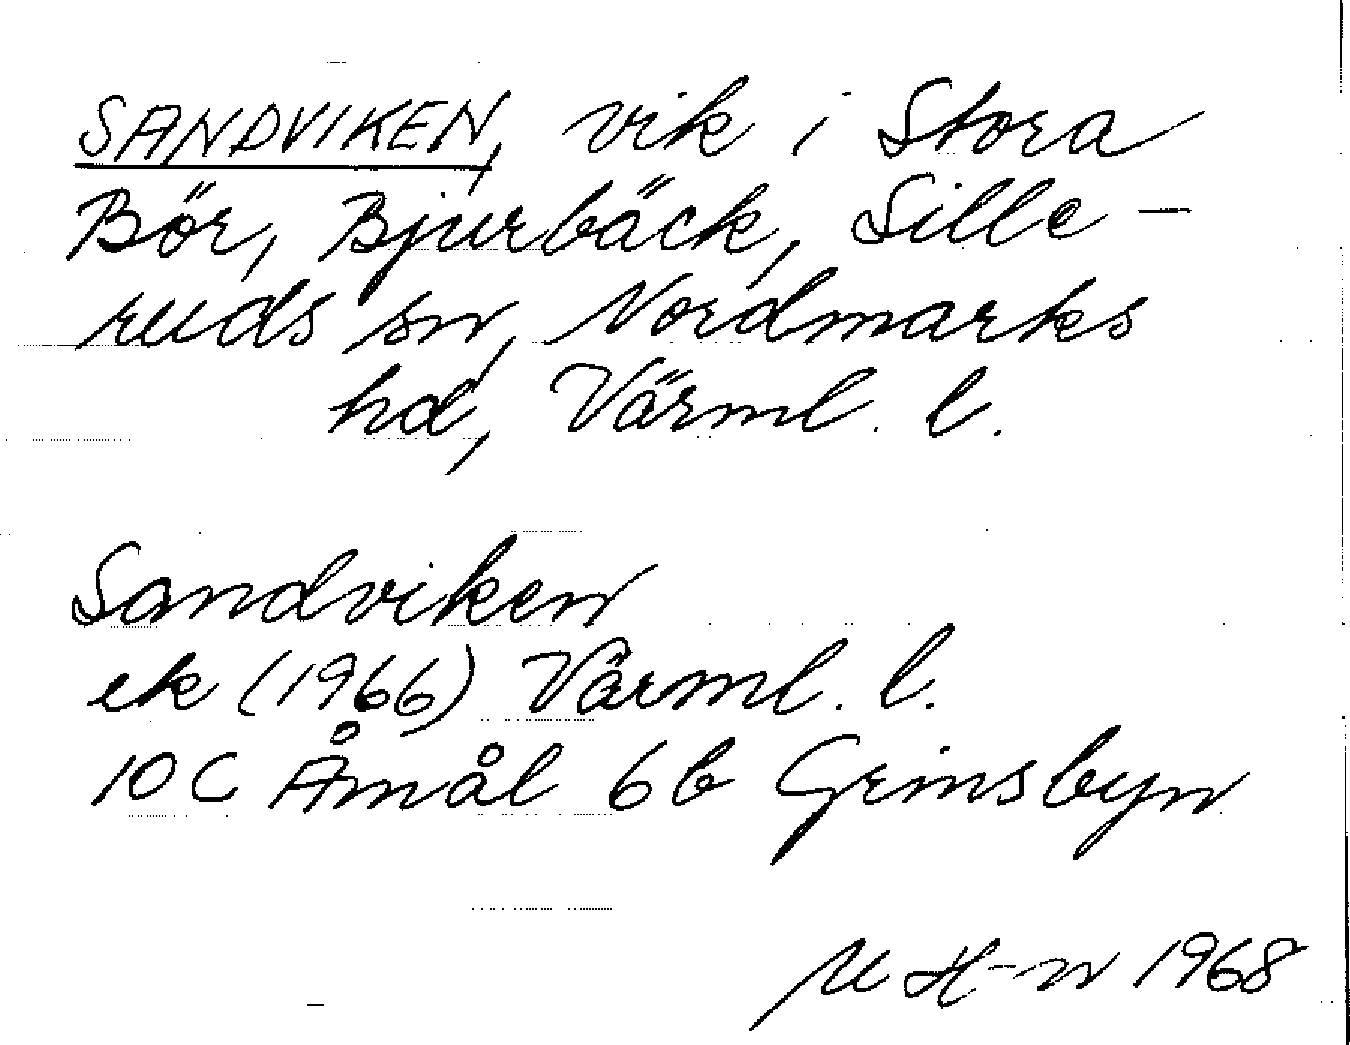 SANDVIKEN, vik i Stora
Bör, Bjurbäck, Sille-
ruds sn, Nordmarks
hd, Värml. l.
Sandviken
ek (1966) Värml. l.
10 C Åmål 6b Grinsbyn
M H-n 1968